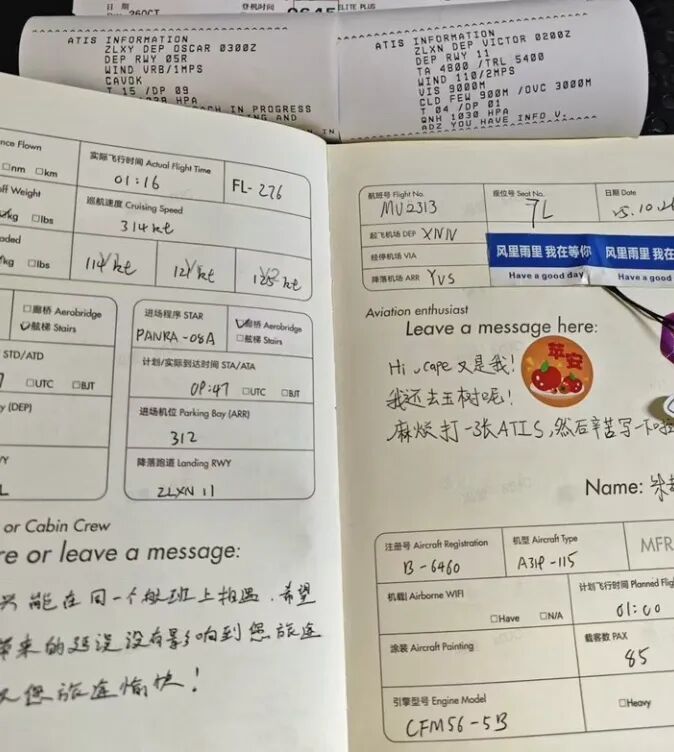 日 期
登机时间
26OCT
0645
ELITE PLUS
ATIS INFORMATION
ZLXY DEP OSCAR 0300Z
DEP RWY 05R
WIND VRB/1MPS
CAVOK
T 15 /DP 09
1028 HPA
CH IN PROGRESS
ING AND
IN
ATIS INFORMATION
ZLXN DEP VICTOR 0200Z
DEP RWY 11
TA 4800 /TRL 5400
WIND 110/2MPS
VIS 9000M
CLD FEW 900M /OVC 3000M
T 04 /DP 01
QNH 1030 HPA
ADZ YOU HAVE INFO V.
nce Flown
□nm □km
实际飞行时间 Actual Flight Time
01:16
FL-276
off Weight
kg □lbs
巡航速度 Cruising Speed
314 kt
aded
kg □lbs
114 kt
121 kt
125 kt
□廊桥 Aerobridge
舷梯 Stairs
进场程序 STAR
PANKA-08A
廊桥 Aerobridge
□舷梯 Stairs
STD/ATD
□UTC □BJT
计划/实际到达时间 STA/ATA
09:47 □UTC □BJT
y (DEP)
进场机位 Parking Bay (ARR)
312
WY
降落跑道 Landing RWY
ZLXN 11
or Cabin Crew
re or leave a message:
兴能在同一个航班上相遇.希望
带来的延误没有影响到您旅途
您旅途愉快!
航班号 Flight No.
MU2313
座位号 Seat No.
7L
日期 Date
25.10.26
起飞机场 DEP XNN
经停机场 VIA
降落机场 ARR YUS
风里雨里 我在等你 风里雨里 我在
Have a good day Have a good
Aviation enthusiast
Leave a message here:
苹安
Hi,cape 又是我!
我还去玉树呢!
麻烦打一张ATIS,然后辛苦写一下啦
Name:
注册号 Aircraft Registration
B-6460
机型 Aircraft Type
A319-115
MFR
机载 Airborne WIFI
□Have □N/A
计划飞行时间 Planned Flig
01:00
涂装 Aircraft Painting
载客数 PAX
85
引擎型号 Engine Model
CFM56-5B
□Heavy